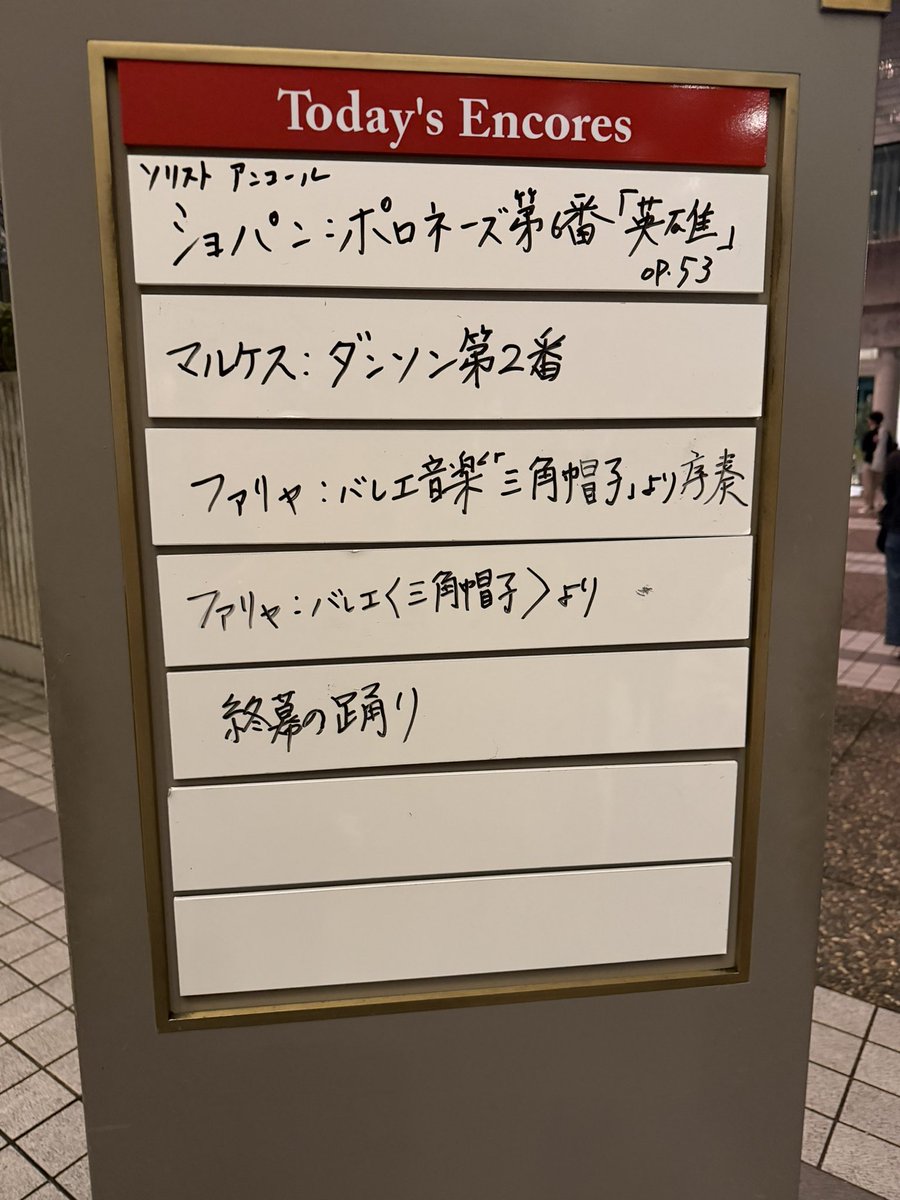 Today's Encores
ソリスト アンコール
ショパン:ポロネーズ第6番「英雄」
OP.53
マルケス:ダンソン第2番
ファリャ:バレエ音楽「三角帽子」より序奏
ファリャ:バレエ〈三角帽子〉より
終幕の踊り